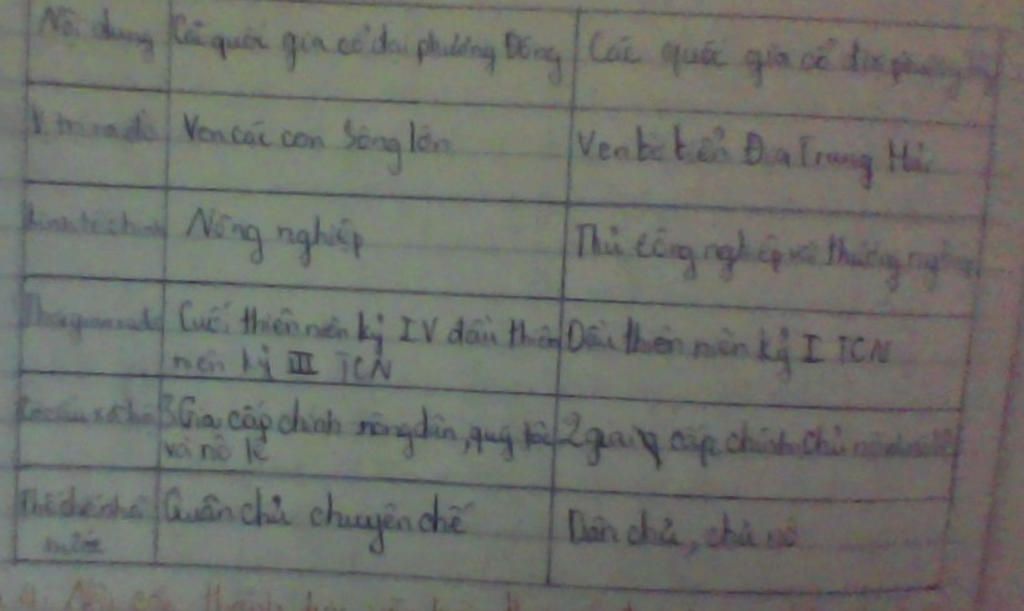 Nội dung | Các quốc gia cổ đại phương Đông | Các quốc gia cổ đại phương
Vị trí ra đời | Ven các con Sông lớn | Ven bờ biển Địa Trung Hải
Kinh tế chính | Nông nghiệp | Thủ công nghiệp và thương nghiệp
Thời gian ra đời | Cuối thiên niên kỷ IV đầu thiên | Đầu thiên niên kỷ I TCN
niên kỷ III TCN
3 Gia cấp chính nông dân, quý tộc | 2 giai cấp chính chủ nô
và nô lệ
Thể chế nhà | Quân chủ chuyên chế | Dân chủ, chủ nô
nước